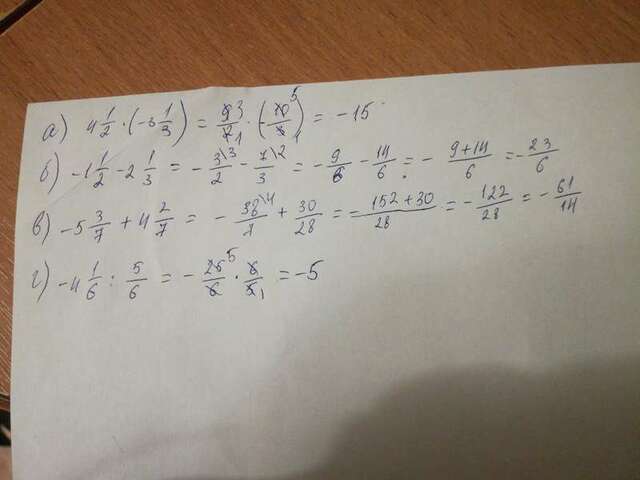 а) 4 1/2 · (-3 1/3) = 9 3/2 1 · (-10 5/3 1) = -15
б) -1 1/2 - 2 1/3 = - 3\3/2 - 7\2/3 = - 9/6 - 14/6 = - 9+14/6 = - 23/6
в) -5 3/7 + 4 2/7 = - 38\4/7 + 30/28 = - 152+30/28 = - 122/28 = - 61/14
г) -4 1/6 : 5/6 = - 25 5/6 · 6/5 1 = -5